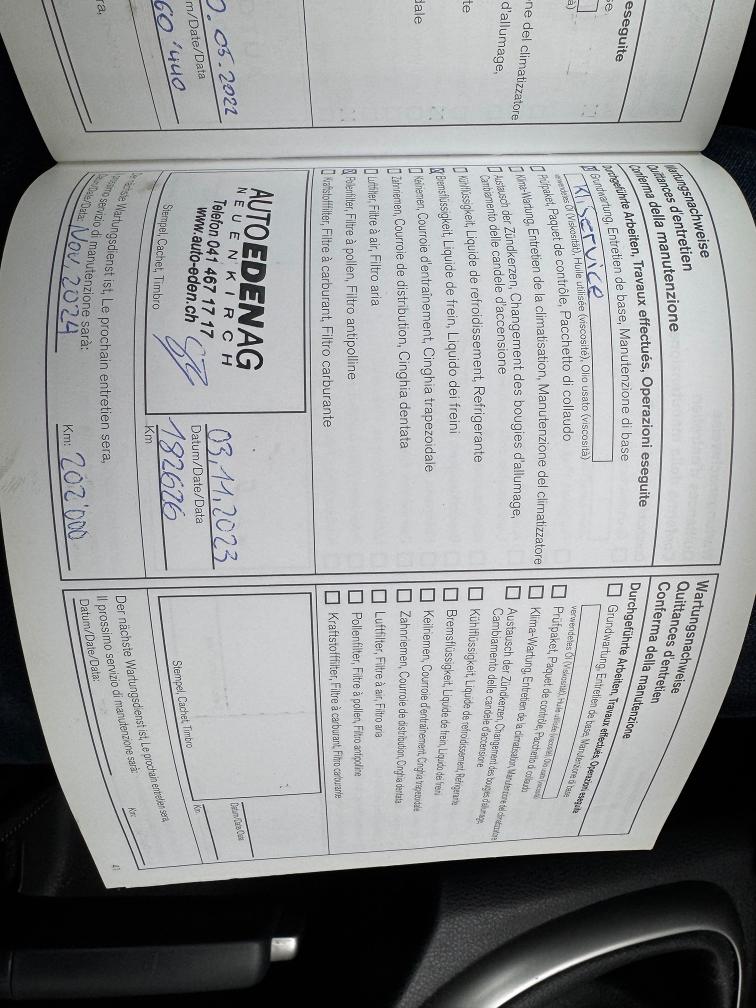 eseguite
ne del climatizzatore
d'allumage,
0.05.2022
m/Date/Data
60'440
Wartungsnachweise
Quittances d'entretien
Conferma della manutenzione
Durchgeführte Arbeiten, Travaux effectués, Operazioni eseguite
☒ Grundwartung, Entretien de base, Manutenzione di base
Kl. Service
verwendetes Öl (Viscosität), Huile utilisée (viscosité), Olio usato (viscosità)
☐ Prüfpaket, Paquet de contrôle, Pacchetto di collaudo
☐ Klima-Wartung, Entretien de la climatisation, Manutenzione del climatizzatore
☐ Austausch der Zündkerzen, Changement des bougies d'allumage,
Cambiamento delle candele d'accensione
☐ Kühlflüssigkeit, Liquide de refroidissement, Refrigerante
☒ Bremsflüssigkeit, Liquide de frein, Liquido dei freini
☐ Keilriemen, Courroie d'entraînement, Cinghia trapezoidale
☐ Zahnriemen, Courroie de distribution, Cinghia dentata
☐ Luftfilter, Filtre à air, Filtro aria
☒ Pollenfilter, Filtre à pollen, Filtro antipolline
☐ Kraftstofffilter, Filtre à carburant, Filtro carburante
AUTOEDENAG
NEUENKIRCH
Telefon 041 467 17 17
www.auto-eden.ch
Stempel, Cachet, Timbro
03.11.2023
Datum/Date/Data
182626
Km
Der nächste Wartungsdienst ist, Le prochain entretien sera,
Il prossimo servizio di manutenzione sarà:
Datum/Date/Data: Nov. 2024
Km: 202'000
Wartungsnachweise
Quittances d'entretien
Conferma della manutenzione
Durchgeführte Arbeiten, Travaux effectués, Operazioni eseguite
☐ Grundwartung, Entretien de base, Manutenzione di base
verwendetes Öl (Viscosität), Huile utilisée (viscosité), Olio usato (viscosità)
☐ Prüfpaket, Paquet de contrôle, Pacchetto di collaudo
☐ Klima-Wartung, Entretien de la climatisation, Manutenzione del climatizzatore
☐ Austausch der Zündkerzen, Changement des bougies d'allumage,
Cambiamento delle candele d'accensione
☐ Kühlflüssigkeit, Liquide de refroidissement, Refrigerante
☐ Bremsflüssigkeit, Liquide de frein, Liquido dei freini
☐ Keilriemen, Courroie d'entraînement, Cinghia trapezoidale
☐ Zahnriemen, Courroie de distribution, Cinghia dentata
☐ Luftfilter, Filtre à air, Filtro aria
☐ Pollenfilter, Filtre à pollen, Filtro antipolline
☐ Kraftstofffilter, Filtre à carburant, Filtro carburante
Stempel, Cachet, Timbro
Datum/Date/Data
Km
Der nächste Wartungsdienst ist, Le prochain entretien sera,
Il prossimo servizio di manutenzione sarà:
Datum/Date/Data:
Km:
41